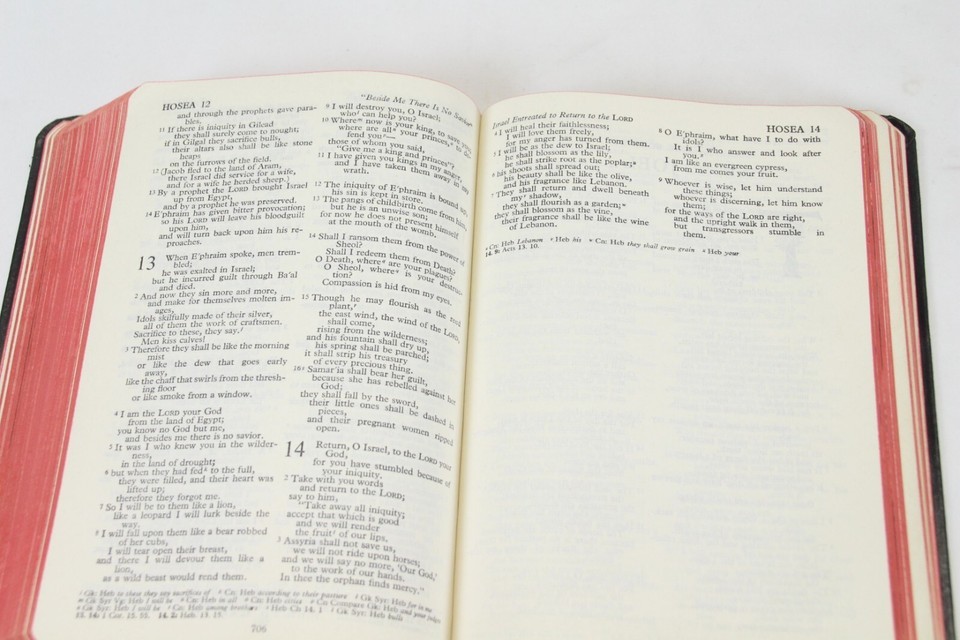 HOSEA 12
"Beside Me There Is No Savior"
and through the prophets gave para-
bles.
11 If there is iniquity in Gilead
they shall surely come to nought;
if in Gilgal they sacrifice bulls,
their altars also shall be like stone
heaps
on the furrows of the field.
12 (Jacob fled to the land of Aram,
there Israel did service for a wife,
and for a wife he herded sheep.)
13 By a prophet the LORD brought Israel
up from Egypt,
and by a prophet he was preserved.
14 E'phraim has given bitter provocation;
so his LORD will leave his bloodguilt
upon him,
and will turn back upon him his re-
proaches.
13 When E'phraim spoke, men trem-
bled;
he was exalted in Israel;
but he incurred guilt through Ba'al
and died.
2 And now they sin more and more,
and make for themselves molten im-
ages,
Idols skilfully made of their silver,
all of them the work of craftsmen.
Sacrifice to these, they say.
Men kiss calves!
3 Therefore they shall be like the morning
mist
or like the dew that goes early
away,
like the chaff that swirls from the thresh-
ing floor
or like smoke from a window.
4 I am the LORD your God
from the land of Egypt;
you know no God but me,
and besides me there is no savior.
5 It was I who knew you in the wilder-
ness,
in the land of drought;
6 but when they had fed to the full,
they were filled, and their heart was
lifted up;
therefore they forgot me.
7 So I will be to them like a lion,
like a leopard I will lurk beside the
way.
8 I will fall upon them like a bear robbed
of her cubs,
I will tear open their breast,
and there I will devour them like a
lion,
as a wild beast would rend them.
9 I will destroy you, O Israel;
who can help you?
10 Where now is your king, to save you;
where are all your princes, to de-
fend you—
those of whom you said,
"Give me a king and princes"?
11 I have given you kings in my anger,
and I have taken them away in my
wrath.
12 The iniquity of E'phraim is bound up,
his sin is kept in store.
13 The pangs of childbirth come from him,
but he is an unwise son;
for now he does not present himself
at the mouth of the womb.
14 Shall I ransom them from the power of
Sheol?
Shall I redeem them from Death?
O Death, where are your plagues?
O Sheol, where is your destruc-
tion?
Compassion is hid from my eyes.
15 Though he may flourish as the reed
plant,
the east wind, the wind of the LORD,
shall come,
rising from the wilderness;
and his fountain shall dry up,
his spring shall be parched;
it shall strip his treasury
of every precious thing.
16 Samar'ia shall bear her guilt,
because she has rebelled against her
God;
they shall fall by the sword,
their little ones shall be dashed in
pieces,
and their pregnant women ripped
open.
14 Return, O Israel, to the LORD your
God,
for you have stumbled because of
your iniquity.
2 Take with you words
and return to the LORD;
say to him,
"Take away all iniquity;
accept that which is good
and we will render
the fruit of our lips.
3 Assyria shall not save us,
we will not ride upon horses;
and we will say no more, 'Our God,'
to the work of our hands.
In thee the orphan finds mercy."
Gk: Heb to these they say sacrifices of Cn: Heb according to their pasture Gk Syr: Heb for in me
Gk Syr Vg: Heb I will be Cn: Heb in all Cn: Heb cities Cn Compare Gk: Heb and your judges
Gk Syr: Heb I will be Cn: Heb among brothers Heb Ch 14. 1 Gk Syr: Heb bulls
13. 14: 1 Cor. 15. 55. 14. 2: Heb. 13. 15.
706
Israel Entreated to Return to the LORD
HOSEA 14
4 I will heal their faithlessness;
I will love them freely,
for my anger has turned from them.
5 I will be as the dew to Israel;
he shall blossom as the lily,
he shall strike root as the poplar;
6 his shoots shall spread out;
his beauty shall be like the olive,
and his fragrance like Lebanon.
7 They shall return and dwell beneath
my shadow,
they shall flourish as a garden;
they shall blossom as the vine,
their fragrance shall be like the wine
of Lebanon.
8 O E'phraim, what have I to do with
idols?
It is I who answer and look after
you.
I am like an evergreen cypress,
from me comes your fruit.
9 Whoever is wise, let him understand
these things;
whoever is discerning, let him know
them;
for the ways of the LORD are right,
and the upright walk in them,
but transgressors stumble in
them.
Cn: Heb Lebanon Heb his Cn: Heb they shall grow grain Heb your
14. 9: Acts 13. 10.